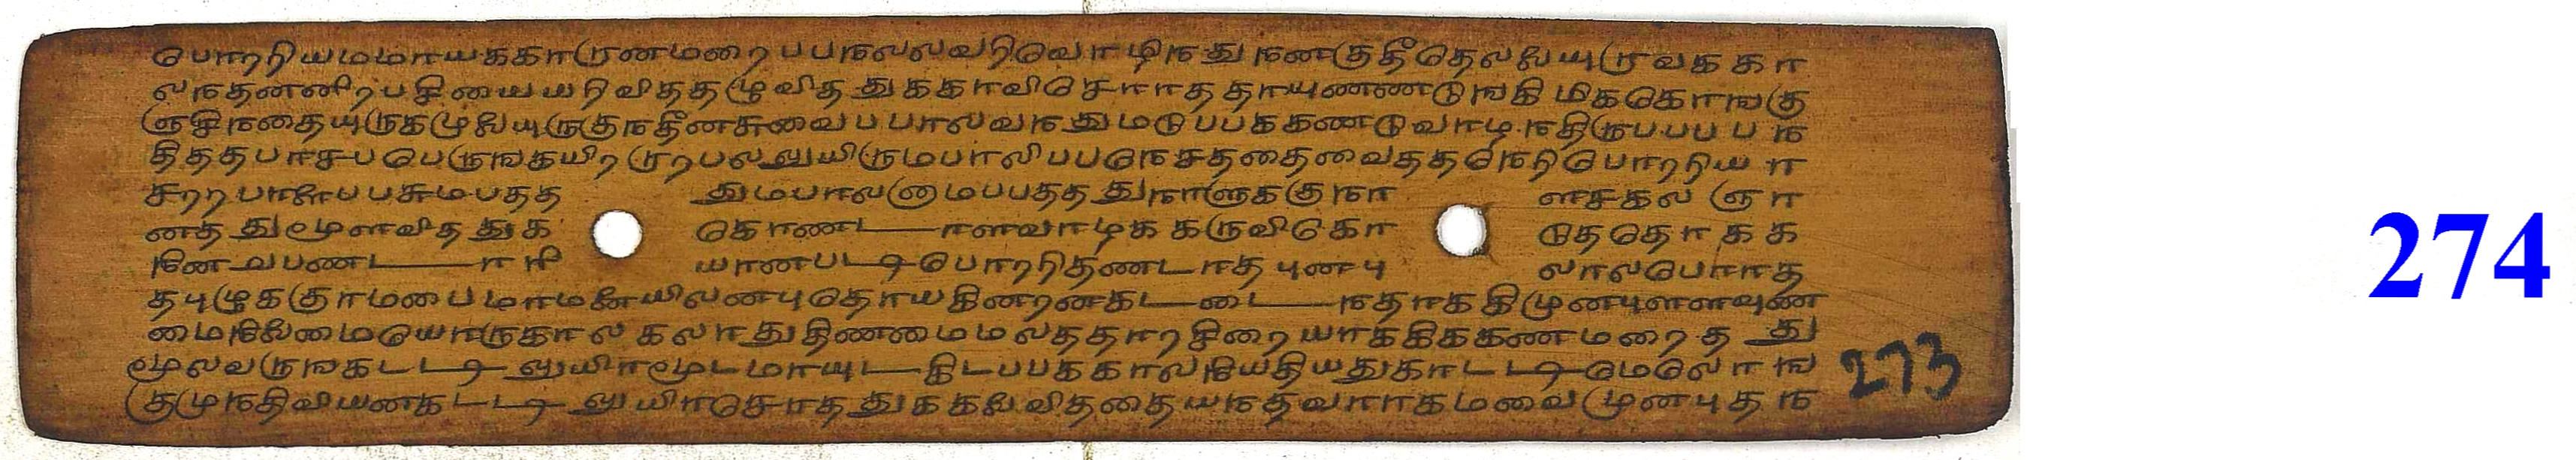 பொறறியமமாயககாரணமறை பபநலலவரிவொழிநதுநணகுதீதெலலேயுருவககா
லநதனனிரபசியையயரிவிததழுவிததுககாவிசொாததாயுணணடுஙகி மிககொஙகு
ளுசிநதையுருகமுலேயுருகுநதீனசுவைபபாலவநதுமடுபபககணடுவாழிநதிருபபபபந
திததபாசபபெருஙகயிறருரபலலுயிருமபாலிபபநெசததைவைததநெரிபொறறியா
சறறபாளேபபசுமபதத துமபாலனுமபபததுநாளுககுநா ளசகல ஞா
னததுமூளவிததுக கொணடாளவாழககருவிகொ டுததொகக
னேவபணடாரி யானபடிபொறறிதணடாதபுனபு லாலபொாத
தபுழுககுராமபைமாமனேயிலனபுதொயகினறனகடடைநதாககிமுனபுளளவுண
மைநிலேமையொருகாலகலாதுதிணமைமலததாறசிறையாககிககணமறைதது
மூலவருஙகடடிலுயிராமூடமாயுடகிடபபககாலநியேதியதுகாடடிமெலொங
குமுநதிவியனகடடிலுயிராசொததுககலேவிததையநதவாாகமவைமுனபுதந
273
274